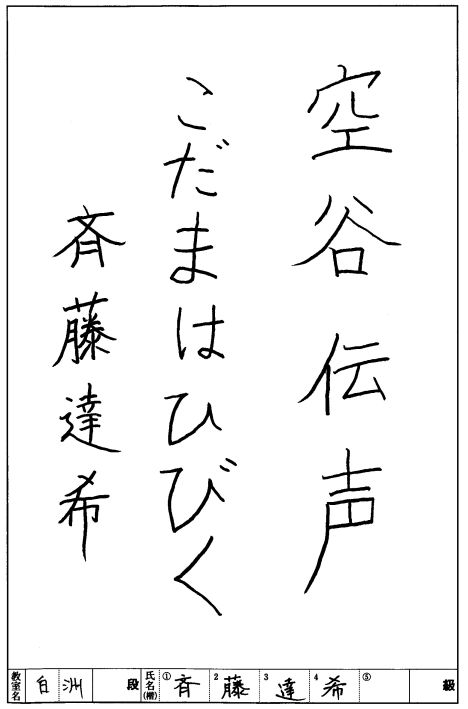 空谷伝声
こだまはひびく
斉藤達希
教室名 白洲 段 氏名(楷) ①斉 2藤 3達 4希 ⑤ 級